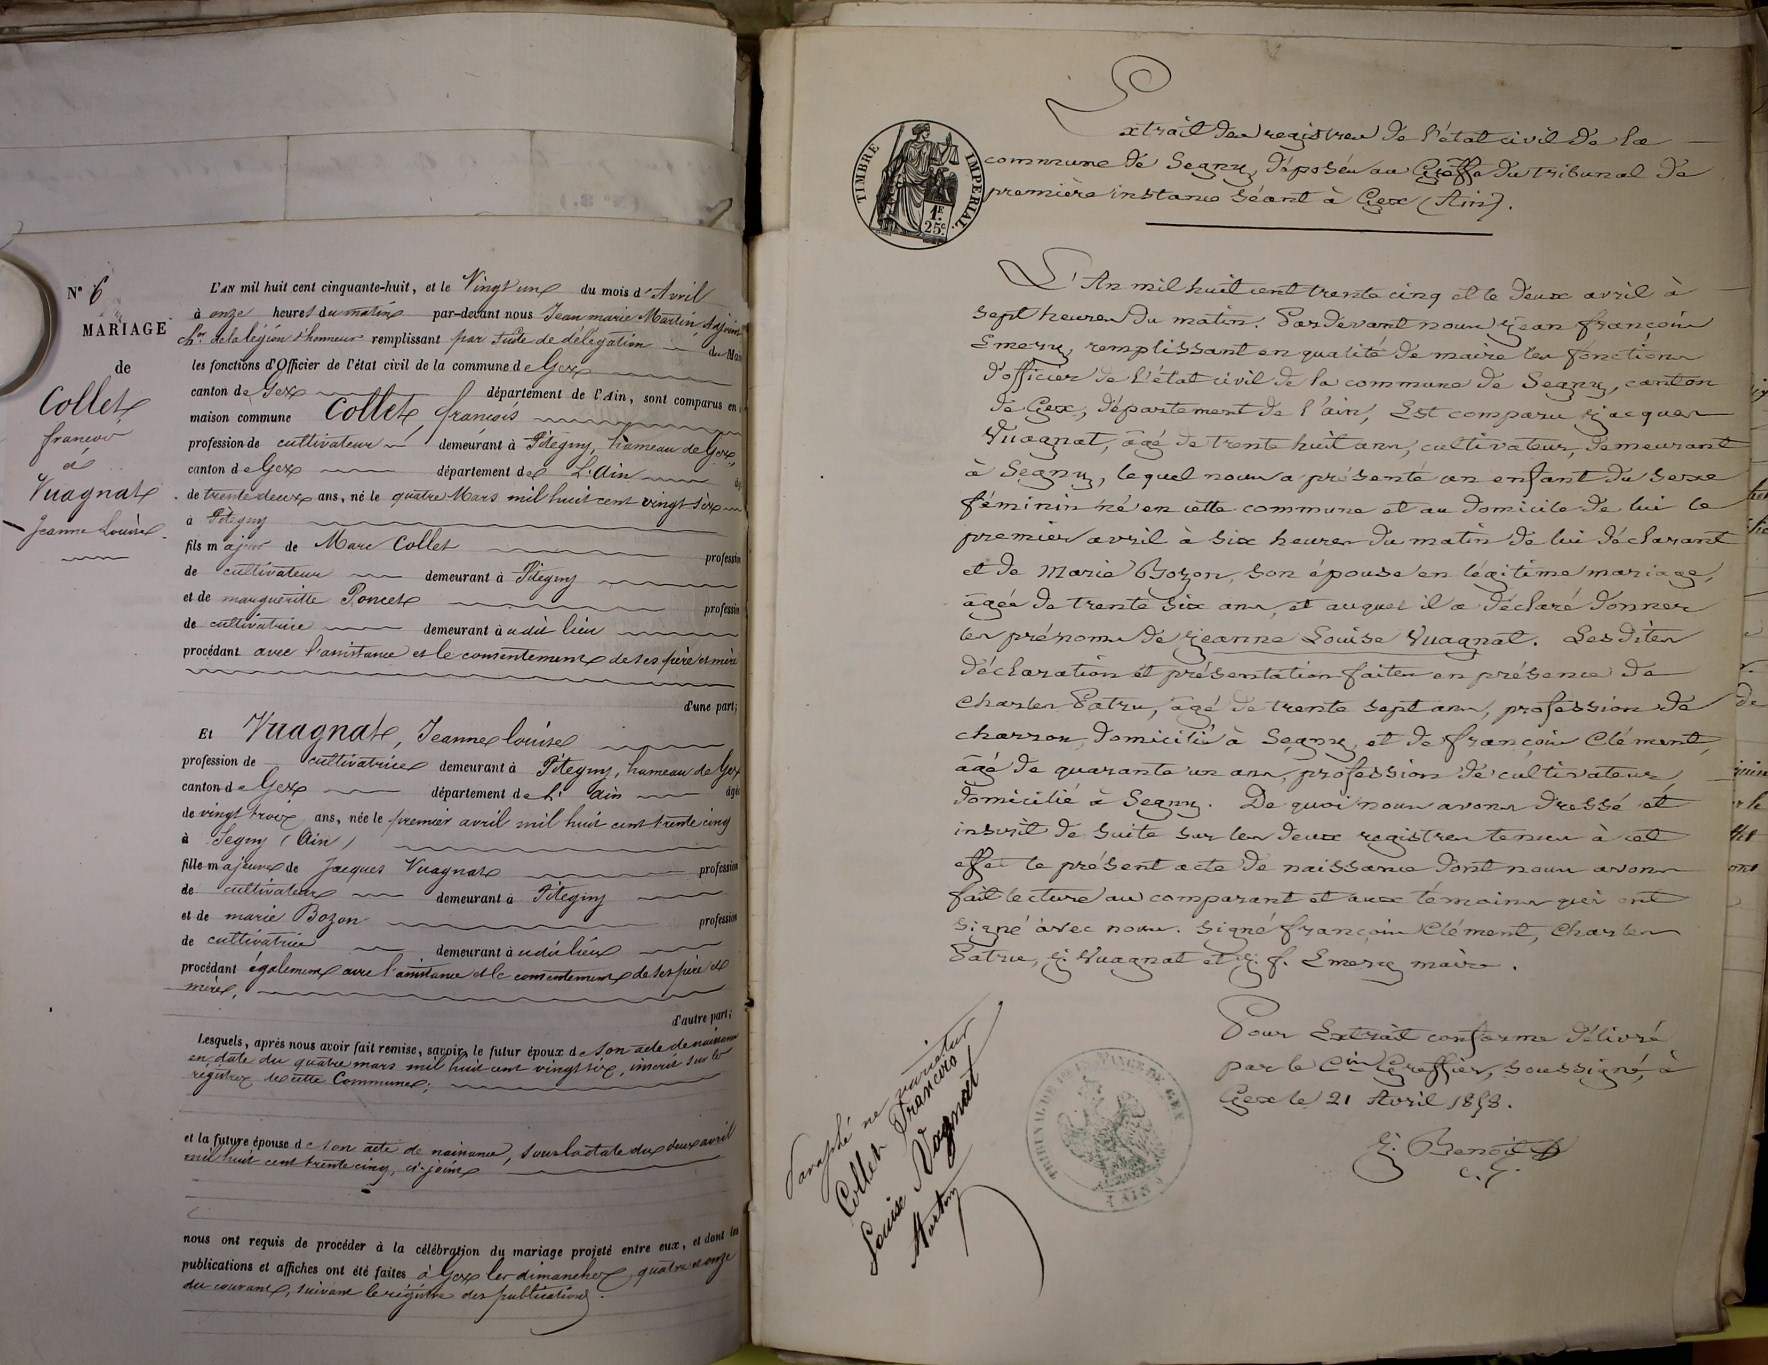 N° 6
MARIAGE
de
Collet
françois
&
Vuagnat
Jeanne Louise
L'AN mil huit cent cinquante-huit, et le Vingt un du mois d'Avril
à onze heures du matin par-devant nous Jean marie Martin Adjoint
Ch.er de la légion d'honneur remplissant par suite de délégation du Maire
les fonctions d'Officier de l'état civil de la commune de Gex
canton de Gex département de l'Ain, sont comparus en
maison commune Collet, françois
profession de cultivateur demeurant à Pitegny, hameau de Gex,
canton de Gex département de L'Ain
de trente deux ans, né le quatre Mars mil huit cent vingt six
à Pitegny
fils majeur de Marc Collet profession
de cultivateur demeurant à Pitegny
et de margueritte Poncet profession
de cultivatrice demeurant à udit lieu
procédant avec l'assistance et le consentement de ses père et mère
d'une part;
Et Vuagnat, Jeanne louise
profession de cultivatrice demeurant à Pitegny, hameau de Gex
canton de Gex département de L'Ain âgée
de vingt trois ans, née le premier avril mil huit cent trente cinq
à Segny (Ain)
fille majeure de Jacques Vuagnat profession
de cultivateur demeurant à Pitegny
et de marie Bozon profession
de cultivatrice demeurant à udit lieu
procédant également avec l'assistance et le consentement de ses père et
mère.
d'autre part;
Lesquels, après nous avoir fait remise, savoir, le futur époux de son acte de naissance
en date du quatre mars mil huit cent vingt six, inscrit sur le
registre de cette Commune;
et la future épouse de son acte de naissance, sous la date du deux avril
mil huit cent trente cinq, ci-joint
nous ont requis de procéder à la célébration du mariage projeté entre eux, et dont les
publications et affiches ont été faites à Gex les dimanches quatre et onze
du courant, suivant le registre des publications.
TIMBRE IMPERIAL.
1F.
25c.
Extrait des registres de l'état civil de la
commune de Segny, déposés au Greffe du tribunal de
première instance séant à Gex (Ain).
L'An mil huit cent trente cinq et le deux avril à
sept heures du matin. Pardevant nous jean françois
Emery, remplissant en qualité de maire les fonctions
d'officier de l'état civil de la commune de Segny, canton
de Gex, département de l'ain, Est comparu jacques
Vuagnat, âgé de trente huit ans, cultivateur, demeurant
à Segny, lequel nous a présenté un enfant du sexe
féminin né en cette commune et au domicile de lui le
premier avril à six heures du matin de lui déclarant
et de Marie Bozon, son épouse en légitime mariage,
âgée de trente six ans, et auquel il a déclaré donner
les prénoms de jeanne Louise Vuagnat. Lesdites
déclaration et présentation faites en présence de
Charles Patru, âgé de trente sept ans, profession de
charron, domicilié à Segny, et de françois Clément,
âgé de quarante un ans, profession de cultivateur,
domicilié à Segny. De quoi nous avons dressé et
inscrit de suite sur les deux registres tenus à cet
effet le présent acte de naissance dont nous avons
fait lecture au comparant et aux témoins qui ont
signé avec nous. Signé françois Clément, Charles
Patru, j. Vuagnat et j. f. Emery maire.
Pour Extrait conforme délivré
par le C.in Greffier, soussigné, à
Gex le 21 Avril 1858.
J. Benoit
c. G.
Paraphé ne varietur
Collet Francois
Louise Vagnat
Martin
TRIBUNAL DE 1RE INSTANCE DE GEX
AIN